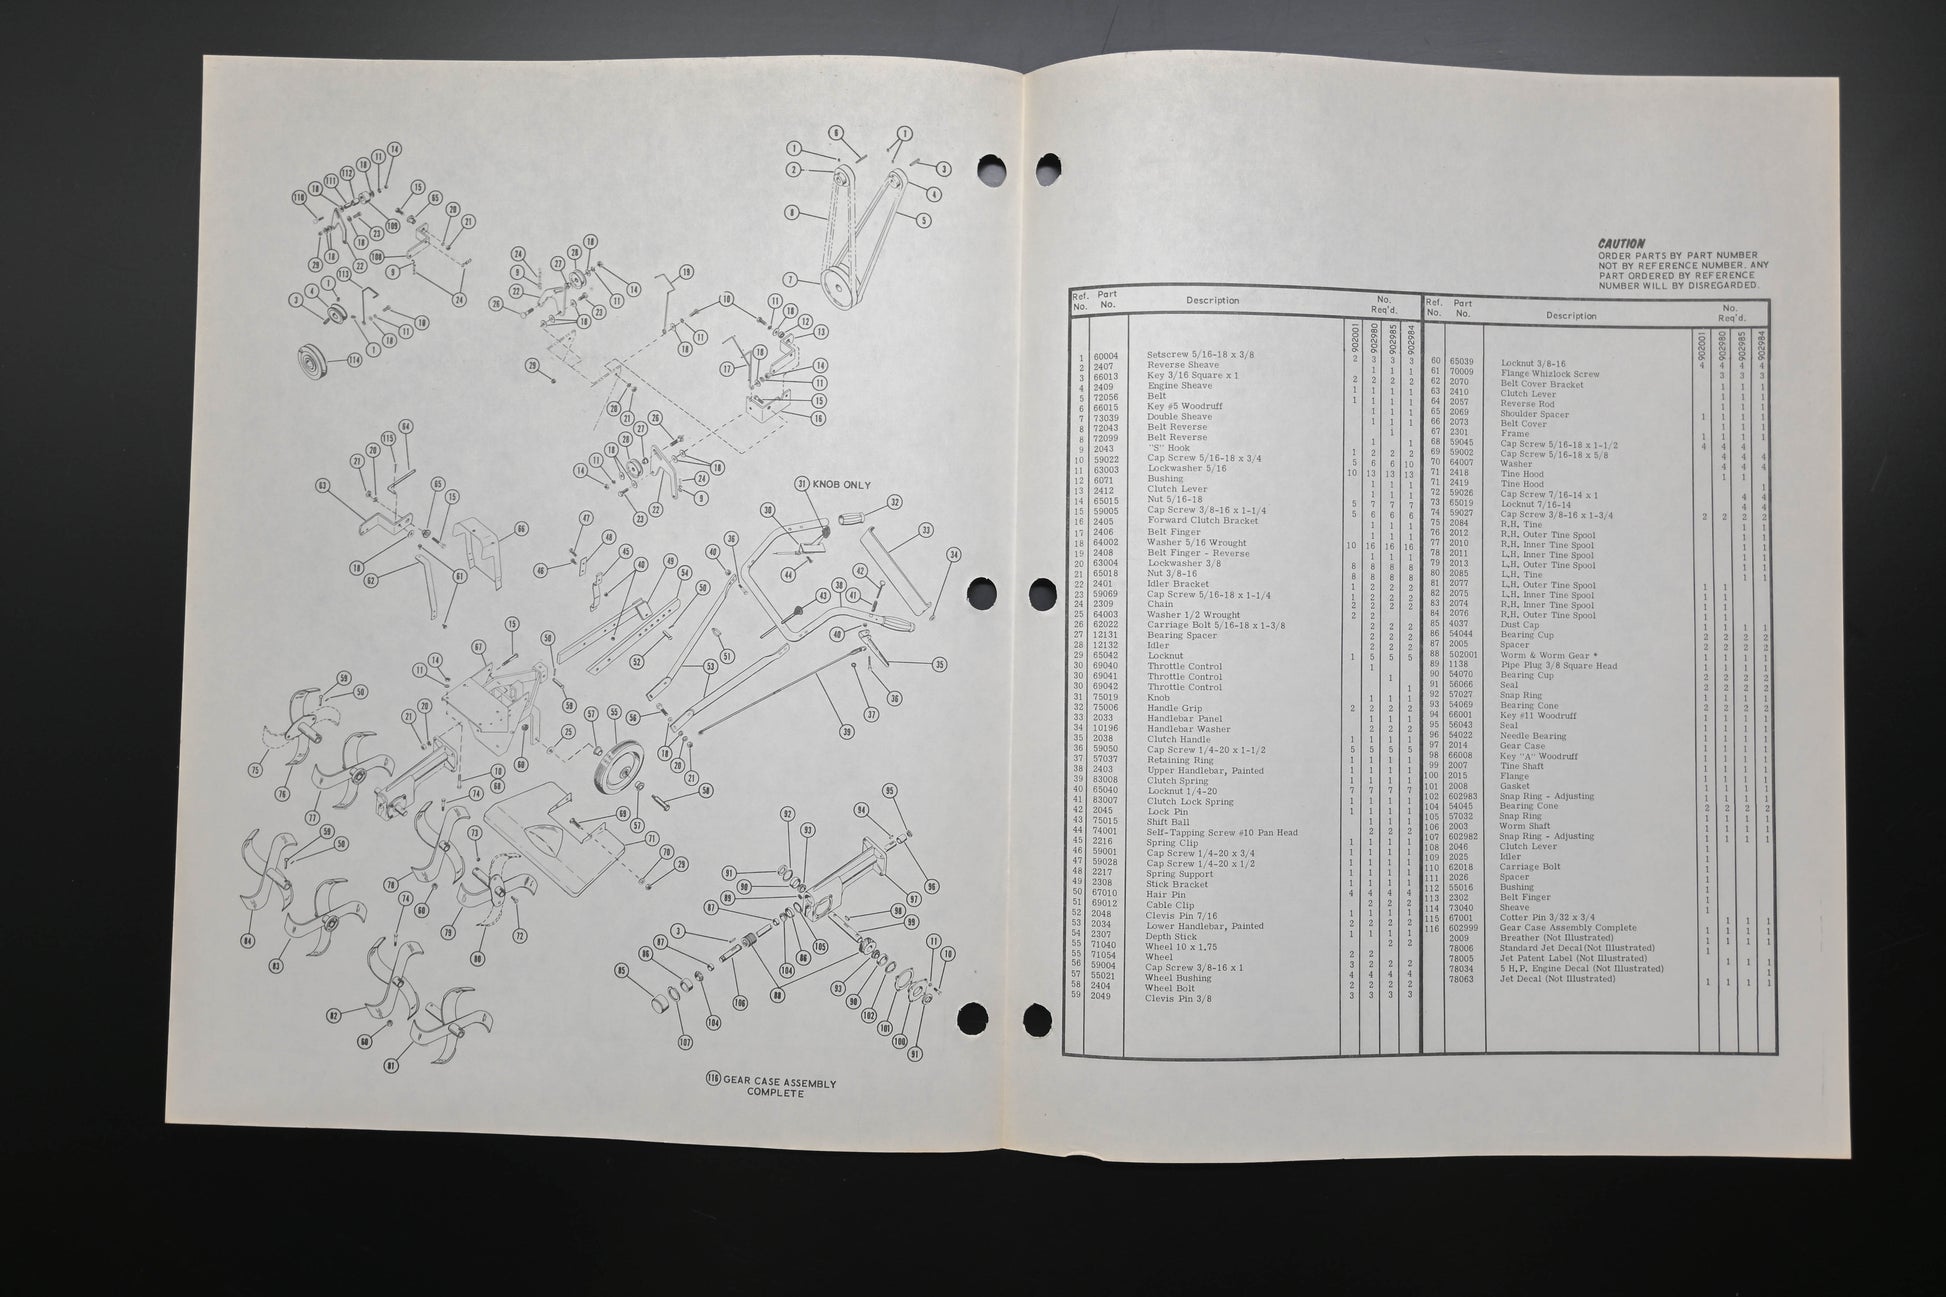 KNOB ONLY
116 GEAR CASE ASSEMBLY
COMPLETE
CAUTION
ORDER PARTS BY PART NUMBER
NOT BY REFERENCE NUMBER. ANY
PART ORDERED BY REFERENCE
NUMBER WILL BY DISREGARDED.
Ref. No. Part No. Description No. Req'd.
902001 902980 902985 902984
1 60004 Setscrew 5/16-18 x 3/8 2 3 3 3
2 2407 Reverse Sheave 1 1 1
3 66013 Key 3/16 Square x 1 2 2 2 2
4 2409 Engine Sheave 1 1 1 1
5 72056 Belt 1 1 1 1
6 66015 Key #5 Woodruff 1 1 1
7 73039 Double Sheave 1 1 1
8 72043 Belt Reverse 1
8 72099 Belt Reverse 1 1
9 2043 "S" Hook 1 2 2 2
10 59022 Cap Screw 5/16-18 x 3/4 5 6 6 10
11 63003 Lockwasher 5/16 10 13 13 13
12 6071 Bushing 1 1 1
13 2412 Clutch Lever 1 1 1
14 65015 Nut 5/16-18 5 7 7 7
15 59005 Cap Screw 3/8-16 x 1-1/4 5 6 6 6
16 2405 Forward Clutch Bracket 1 1 1
17 2406 Belt Finger 1 1 1
18 64002 Washer 5/16 Wrought 10 16 16 16
19 2408 Belt Finger - Reverse 1 1 1
20 63004 Lockwasher 3/8 8 8 8 8
21 65018 Nut 3/8-16 8 8 8 8
22 2401 Idler Bracket 1 2 2 2
23 59069 Cap Screw 5/16-18 x 1-1/4 1 2 2 2
24 2309 Chain 2 2 2 2
25 64003 Washer 1/2 Wrought 2 2
26 62022 Carriage Bolt 5/16-18 x 1-3/8 2 2 2
27 12131 Bearing Spacer 2 2 2
28 12132 Idler 2 2 2
29 65042 Locknut 1 5 5 5
30 69040 Throttle Control 1
30 69041 Throttle Control 1
30 69042 Throttle Control 1
31 75019 Knob 1 1 1
32 75006 Handle Grip 2 2 2 2
33 2033 Handlebar Panel 1 1 1
34 10196 Handlebar Washer 2 2 2
35 2038 Clutch Handle 1 1 1 1
36 59050 Cap Screw 1/4-20 x 1-1/2 5 5 5 5
37 57037 Retaining Ring 1 1 1 1
38 2403 Upper Handlebar, Painted 1 1 1 1
39 83008 Clutch Spring 1 1 1 1
40 65040 Locknut 1/4-20 7 7 7 7
41 83007 Clutch Lock Spring 1 1 1 1
42 2045 Lock Pin 1 1 1 1
43 75015 Shift Ball 1 1 1
44 74001 Self-Tapping Screw #10 Pan Head 2 2 2
45 2216 Spring Clip 1 1 1 1
46 59001 Cap Screw 1/4-20 x 3/4 1 1 1 1
47 59028 Cap Screw 1/4-20 x 1/2 1 1 1 1
48 2217 Spring Support 1 1 1 1
49 2308 Stick Bracket 1 1 1 1
50 67010 Hair Pin 4 4 4 4
51 69012 Cable Clip 2 2 2
52 2048 Clevis Pin 7/16 1 1 1 1
53 2034 Lower Handlebar, Painted 2 2 2 2
54 2307 Depth Stick 1 1 1 1
55 71040 Wheel 10 x 1.75 2 2
55 71054 Wheel 2 2
56 59004 Cap Screw 3/8-16 x 1 3 2 2 2
57 55021 Wheel Bushing 4 4 4 4
58 2404 Wheel Bolt 2 2 2 2
59 2049 Clevis Pin 3/8 3 3 3 3
Ref. No. Part No. Description No. Req'd.
902001 902980 902985 902984
60 65039 Locknut 3/8-16 4 4 4 4
61 70009 Flange Whizlock Screw 3 3 3
62 2070 Belt Cover Bracket 1 1 1
63 2410 Clutch Lever 1 1 1
64 2057 Reverse Rod 1 1 1
65 2069 Shoulder Spacer 1 1 1 1
66 2073 Belt Cover 1 1 1
67 2301 Frame 1 1 1 1
68 59045 Cap Screw 5/16-18 x 1-1/2 4 4
69 59002 Cap Screw 5/16-18 x 5/8 4 4 4
70 64007 Washer 4 4 4
71 2418 Tine Hood 1 1
71 2419 Tine Hood 1
72 59026 Cap Screw 7/16-14 x 1 4 4
73 65019 Locknut 7/16-14 4 4
74 59027 Cap Screw 3/8-16 x 1-3/4 2 2 2 2
75 2084 R.H. Tine 1 1
76 2012 R.H. Outer Tine Spool 1 1
77 2010 R.H. Inner Tine Spool 1 1
78 2011 L.H. Inner Tine Spool 1 1
79 2013 L.H. Outer Tine Spool 1 1
80 2085 L.H. Tine 1 1
81 2077 L.H. Outer Tine Spool 1 1
82 2075 L.H. Inner Tine Spool 1 1
83 2074 R.H. Inner Tine Spool 1 1
84 2076 R.H. Outer Tine Spool 1 1
85 4037 Dust Cap 1 1 1 1
86 54044 Bearing Cup 2 2 2 2
87 2005 Spacer 2 2 2 2
88 502001 Worm & Worm Gear * 1 1 1 1
89 1138 Pipe Plug 3/8 Square Head 1 1 1 1
90 54070 Bearing Cup 2 2 2 2
91 56066 Seal 2 2 2 2
92 57027 Snap Ring 1 1 1 1
93 54069 Bearing Cone 2 2 2 2
94 66001 Key #11 Woodruff 1 1 1 1
95 56043 Seal 1 1 1 1
96 54022 Needle Bearing 1 1 1 1
97 2014 Gear Case 1 1 1 1
98 66008 Key "A" Woodruff 1 1 1 1
99 2007 Tine Shaft 1 1 1 1
100 2015 Flange 1 1 1 1
101 2008 Gasket 1 1 1 1
102 602983 Snap Ring - Adjusting 1 1 1 1
104 54045 Bearing Cone 2 2 2 2
105 57032 Snap Ring 1 1 1 1
106 2003 Worm Shaft 1 1 1 1
107 602982 Snap Ring - Adjusting 1 1 1 1
108 2046 Clutch Lever 1
109 2025 Idler 1
110 62018 Carriage Bolt 1
111 2026 Spacer 1
112 55016 Bushing 1
113 2302 Belt Finger 1
114 73040 Sheave 1
115 67001 Cotter Pin 3/32 x 3/4 1 1 1
116 602999 Gear Case Assembly Complete 1 1 1 1
2009 Breather (Not Illustrated) 1 1 1 1
78006 Standard Jet Decal (Not Illustrated) 1
78005 Jet Patent Label (Not Illustrated) 1 1 1
78034 5 H.P. Engine Decal (Not Illustrated) 1
78063 Jet Decal (Not Illustrated) 1 1 1 1